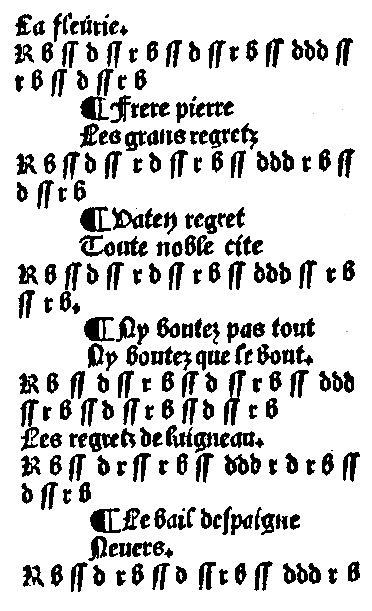 La fleurie.
R b ſſ d ſſ r b ſſ d ſſ r b ſſ ddd ſſ
r b ſſ d ſſ r b
¶ Frere pierre
Les grans regretz
R b ſſ d ſſ r d ſſ r b ſſ ddd r b ſſ
d ſſ r b
¶ Vaten regret
Toute noble cite
R b ſſ d ſſ r d ſſ r b ſſ ddd ſſ r b
ſſ r b.
¶ Ny boutez pas tout
Ny boutez que le bout.
R b ſſ d ſſ r b ſſ d ſſ r b ſſ ddd
ſſ r b ſſ d ſſ r b ſſ d ſſ r b
Les regretz de laigneau.
R b ſſ d r ſſ r b ſſ ddd r d r b ſſ
d ſſ r b
¶ Le bail deſpaigne
Neuers.
R b ſſ d r b ſſ d ſſ r b ſſ ddd r b